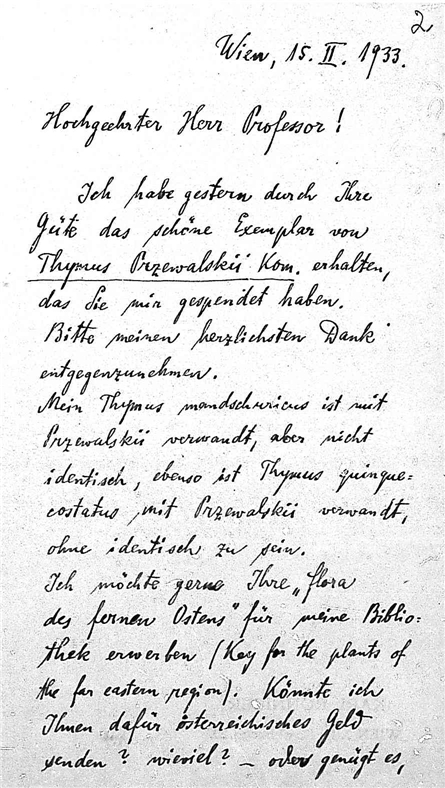 2
Wien, 15. II. 1933.
Hochgeehrter Herr Professor!
Ich habe gestern durch Ihre
Güte das schöne Exemplar von
Thymus Przewalskii Kom. erhalten,
das Sie mir gespendet haben.
Bitte meinen herzlichsten Dank
entgegenzunehmen.
Mein Thymus mandschuricus ist mit
Przewalskii verwandt, aber nicht
identisch, ebenso ist Thymus quinque=
costatus mit Przewalskii verwandt,
ohne identisch zu sein.
Ich möchte gerne Ihre „flora
des fernen Ostens" für meine Biblio=
thek erwerben (Key for the plants of
the far eastern region). Könnte ich
Ihnen dafür österreichisches Geld
senden? wieviel? – oder genügt es,